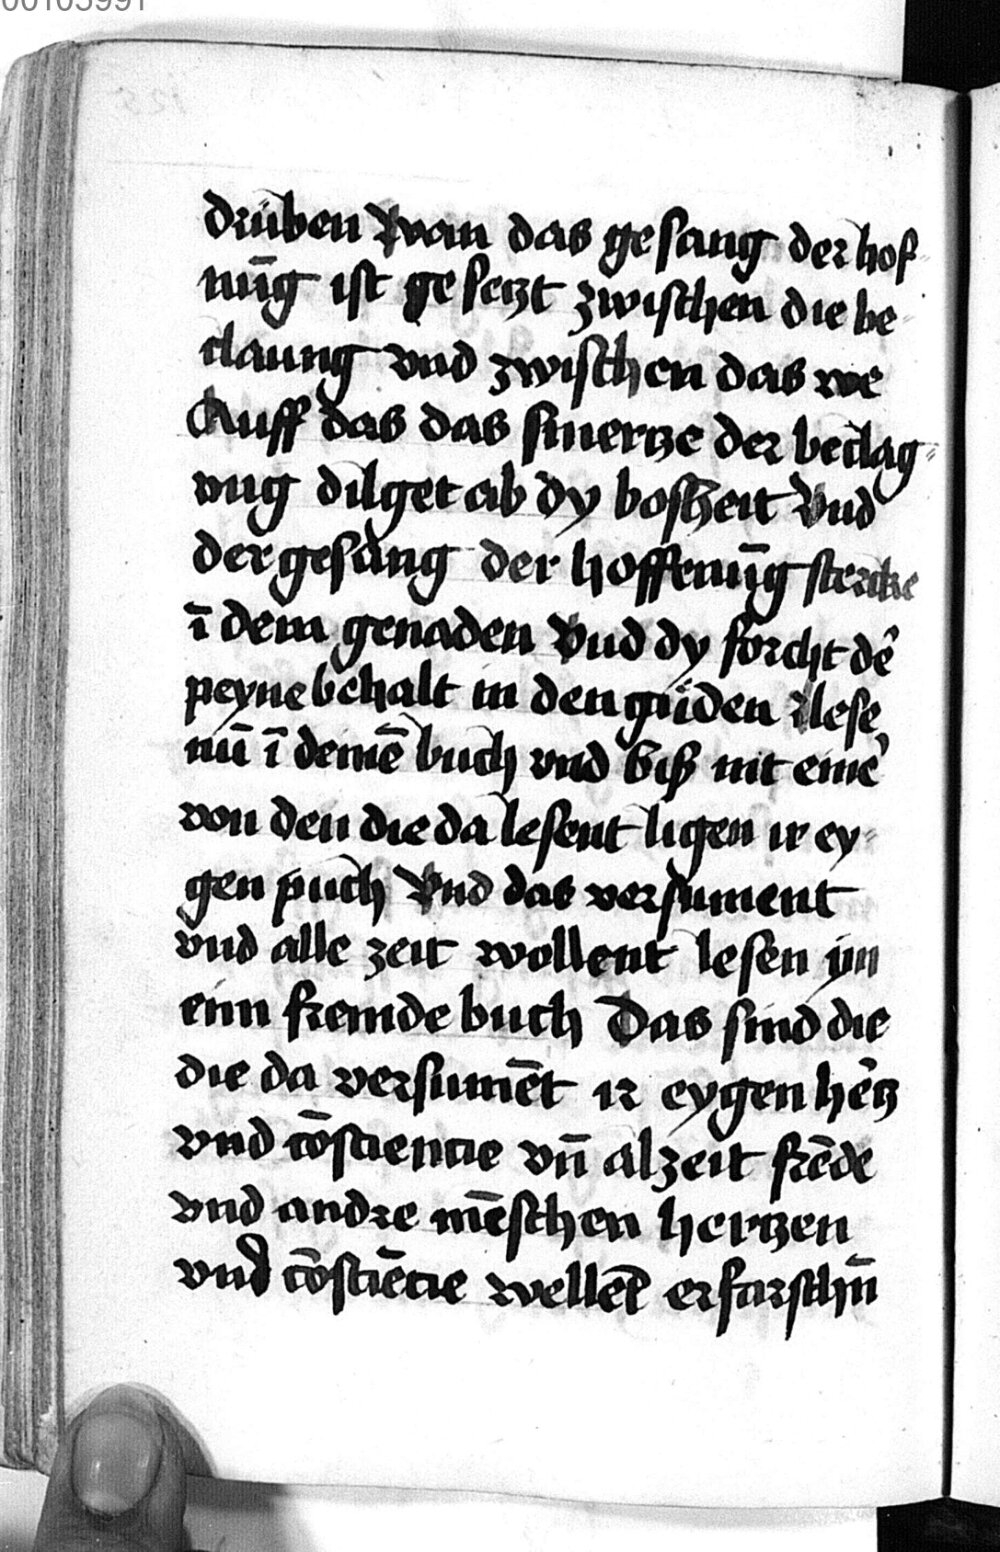 00105991
drüben Wan das gesang der hof
nu̅g ist gesetzt zwischen die be
claung vnd zwischen das we
Auff das das smertze der beclag
vng dilget ab dy bosheit Vnd
der gesang der hoffenu̅g stercke
i̅ dem genaden Vnd dy forcht de᷑
peyne behalt in den güden lese
nu̅ i̅ deine̅ buch vnd biß nit eine᷑
von den die da lesent ligen ir ey
gen puch Vnd das versument
vnd alle zeit wollent lesen yn
einn fremde buch Das sind die
die da versume̅t ir eygen he᷑tz
vnd co̅sciencie vn̅ alzeit fre̅de
vnd andre me̅schen hertzen
vnd co̅scie̅cie welle̅t erfarschn̅